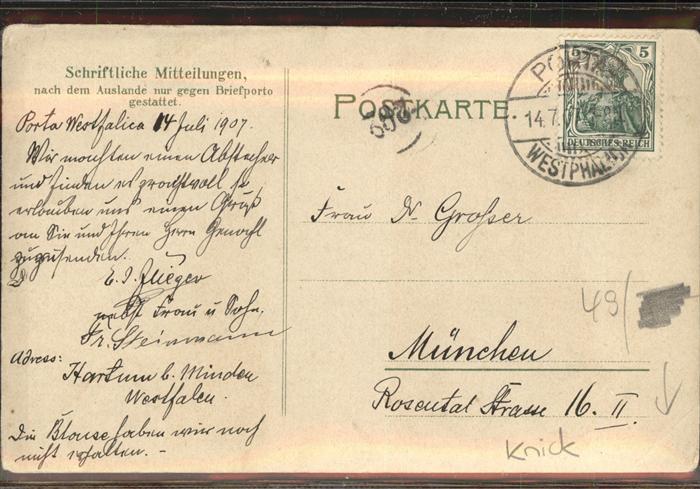 Schriftliche Mitteilungen,
nach dem Auslande nur gegen Briefporto
gestattet.
Porta Westfalica 14 Juli 1907.
Wir machten einen Abstecher
und finden es prachtvoll je
erlauben uns einen Gruß
an Sie und Ihren Herrn Gemahl
zuzusenden.
E. J. Flieger
nebst Frau u Sohn.
Fr. Steinmann
Adress:
Hartum b. Minden
Westfalen.
Die Blouse haben wir noch
nicht erhalten. –
POSTKARTE.
PORTA
14.7.
WESTPHALICA
5
5
DEUTSCHES REICH
Frau Dr. Grosser
München
Rosental Strasse 16. II.
49/
Knick